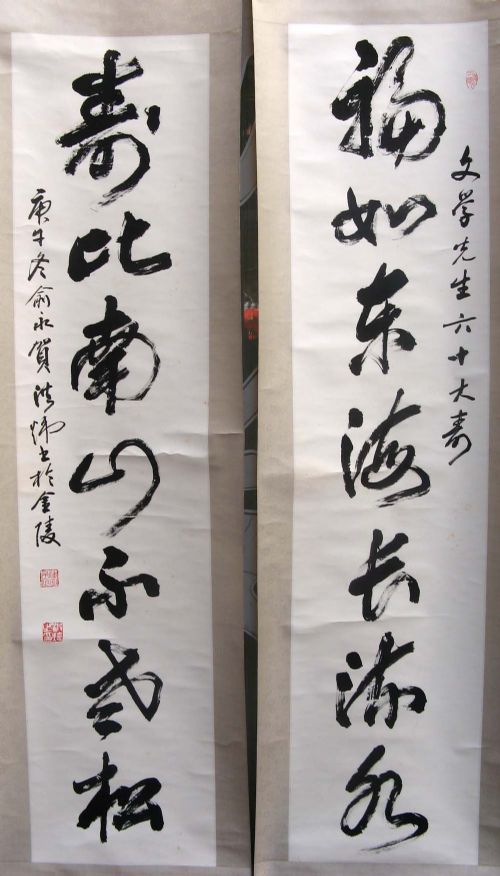 文学先生六十大寿
福如东海长流水
寿比南山不老松
庚午冬俞永贺 洪炜书於金陵